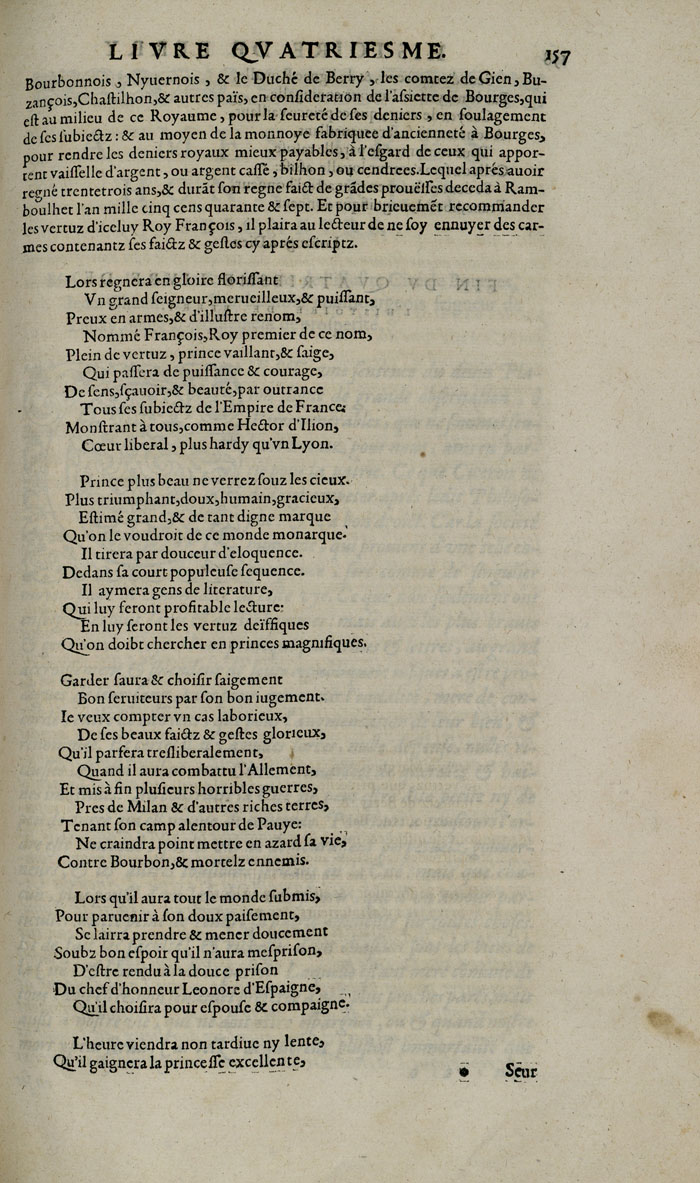 LIVRE QVATRIESME. 157
Bourbonnois , Nyuernois , & le Duché de Berry , les comtez de Gien, Bu-
zançois, Chaſtilhon, & autres païs, en conſideration de l'aſsiette de Bourges, qui
eſt au milieu de ce Royaume, pour la ſeureté de ſes deniers , en ſoulagement
de ſes ſubiectz : & au moyen de la monnoye fabriquee d'ancienneté à Bourges,
pour rendre les deniers royaux mieux payables, à l'eſgard de ceux qui appor-
tent vaiſſelle d'argent, ou argent caſſé, bilhon, ou cendrees. Lequel aprés auoir
regné trentetrois ans, & durāt ſon regne faict de grādes prouëſſes deceda à Ram-
boulhet l'an mille cinq cens quarante & ſept. Et pour brieuemēt recommander
les vertuz d'iceluy Roy François, il plaira au lecteur de ne ſoy ennuyer des car-
mes contenantz ſes faictz & geſtes cy aprés eſcriptz.
Lors regnera en gloire floriſſant
Vn grand ſeigneur, merueilleux, & puiſſant,
Preux en armes, & d'illuſtre renom,
Nommé François, Roy premier de ce nom,
Plein de vertuz , prince vaillant, & ſaige,
Qui paſſera de puiſſance & courage,
De ſens, ſçauoir, & beauté, par outrance
Tous ſes ſubiectz de l'Empire de France:
Monſtrant à tous, comme Hector d'Ilion,
Cœur liberal , plus hardy qu'vn Lyon.
Prince plus beau ne verrez ſouz les cieux.
Plus triumphant, doux, humain, gracieux,
Eſtimé grand, & de tant digne marque
Qu'on le voudroit de ce monde monarque.
Il tirera par douceur d'eloquence.
Dedans ſa court populeuſe ſequence.
Il aymera gens de literature,
Qui luy feront profitable lecture:
En luy ſeront les vertuz deïffiques
Qu'on doibt chercher en princes magnifiques.
Garder ſaura & choiſir ſaigement
Bon ſeruiteurs par ſon bon iugement.
Ie veux compter vn cas laborieux,
De ſes beaux faictz & geſtes glorieux,
Qu'il parfera treſliberalement,
Quand il aura combattu l'Allement,
Et mis à fin pluſieurs horribles guerres,
Pres de Milan & d'autres riches terres,
Tenant ſon camp alentour de Pauye:
Ne craindra point mettre en azard ſa vie,
Contre Bourbon, & mortelz ennemis.
Lors qu'il aura tout le monde ſubmis,
Pour paruenir à ſon doux paiſement,
Se lairra prendre & mener doucement
Soubz bon eſpoir qu'il n'aura meſpriſon,
D'eſtre rendu à la douce priſon
Du chef d'honneur Leonore d'Eſpaigne,
Qu'il choiſira pour eſpouſe & compaigne.
L'heure viendra non tardiue ny lente,
Qu'il gaignera la princeſſe excellente,
Seur